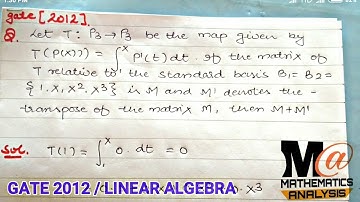 gate [2012].
Q. Let T: P3 → P3 be the map given by
T(P(x)) = ∫₁ˣ P'(t) dt. If the matrix of
T relative to the standard basis B1 = B2 =
{1, x, x², x³} is M and M' denotes the -
transpose of the matrix M, then M+M'
Sol. T(1) = ∫₁ˣ 0. dt = 0
M@
MATHEMATICS
ANALYSIS
GATE 2012 / LINEAR ALGEBRA x3